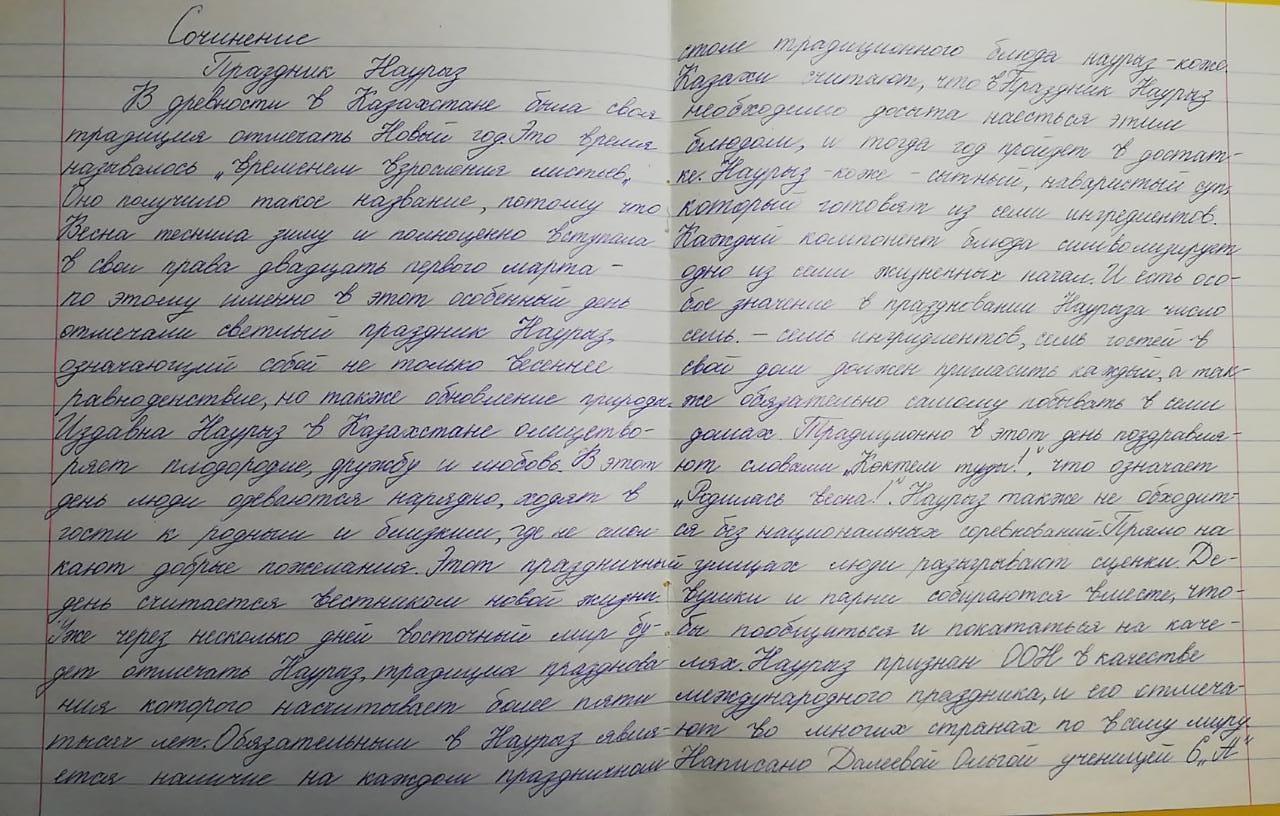 Сочинение
Праздник Наурыз
В древности в Казахстане была своя
традиция отмечать Новый год. Это время
называлось „временем взросления листьев„
Оно получило такое название, потому что
Весна теснила зиму и полноценно вступала
в свои права двадцать первого марта –
по этому именно в этот особенный день
отмечали светлый праздник Наурыз,
означающий собой не только весеннее
равноденствие, но также обновление природы.
Издавна Наурыз в Казахстане олицетво-
ряет плодородие, дружбу и любовь. В этот
день люди одеваются нарядно, ходят в
гости к родным и близким, где не смол
кают добрые пожелания. Этот праздничный
день считается вестником новой жизни
Уже через несколько дней восточный мир бу-
дет отмечать Наурыз, традиция празднова
ния которого насчитывает более пяти
тысяч лет. Обязательным в Наурыз явля-
ется наличие на каждом праздничном
столе традиционного блюда наурыз-коже.
Казахи считают, что в Праздник Наурыз
необходимо досыта наесться этим
блюдом, и тогда год пройдет в достат-
ке. Наурыз-коже – сытный, наваристый суп,
который готовят из семи ингредиентов.
Каждый компонент блюда символизирует
одно из семи жизненных начал. И есть осо-
бое значение в праздновании Наурыза число
семь. – семь ингридиентов, семь гостей в
свой дом должен пригласить каждый, а так-
же обязательно самому побывать в семи
домах. Традиционно в этот день поздравля-
ют словами „Көктем туды!", что означает
„Родилась весна!". Наурыз также не обходит-
ся без национальнах соревнований. Прямо на
улицах люди разыгрывают сценки. Де-
вушки и парни собираются вместе, что-
бы пообщиться и покататься на каче-
лях. Наурыз признан ООН в качестве
международного праздника, и его отмеча-
ют во многих странах по всему миру
Написано Далеевой Ольгой ученицей 6„А"